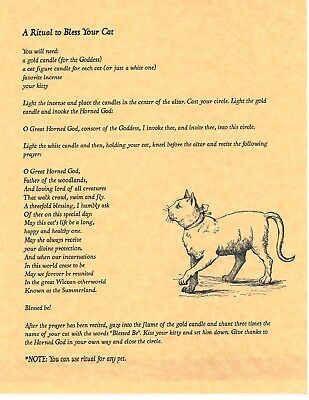 A Ritual to Bless Your Cat
You will need:
a gold candle (for the Goddess)
a cat figure candle for each cat (or just a white one)
favorite incense
your kitty
Light the incense and place the candles in the center of the altar. Cast your circle. Light the gold
candle and invoke the Horned God:
O Great Horned God, consort of the Goddess, I invoke thee, and invite thee, into this circle.
Light the white candle and then, holding your cat, kneel before the altar and recite the following
prayer:
O Great Horned God,
Father of the woodlands,
And loving lord of all creatures
That walk crawl, swim and fly.
A threefold blessing, I humbly ask
Of thee on this special day:
May this cat's life be a long,
happy and healthy one.
May she always receive
your divine protection.
And when our incarnations
In this world cease to be
May we forever be reunited
In the great Wiccan otherworld
Known as the Summerland.
Blessed be!
After the prayer has been recited, gaze into the flame of the gold candle and chant three times the
name of your cat with the words "Blessed Be". Kiss your kitty and set him down. Give thanks to
the Horned God in your own way and close the circle.
*NOTE: You can use ritual for any pet.